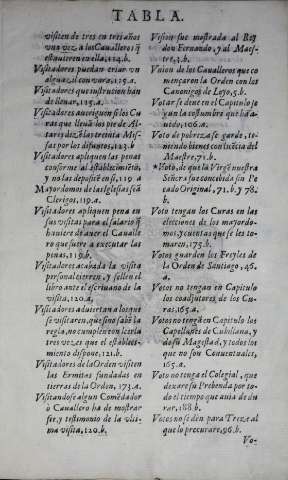 TABLA.
visiten de tres en tres años
una vez a los Caualleros q̃
estuuieren en ella, 124.b.
Visitadores puedan criar vn
alguazil con vara, 129.a.
Visitadores que instrucion han
de lleuar, 125.a.
Visitadores aueriguen si los Cu
ras que lleuã los pie de Al-
tar, y diez. las treinta Mis-
sas por los difuntos, 123.b
Visitadores apliquen las penas
conforme al establecimiẽto,
y no las depositẽ en si, 119.a
Mayordomos de las Iglesias seã
Clerigos, 119.a.
Visitadores apliquen pena en
sus visitas para el salario q̃
huuiere de auer el Cauалle
ro que fuere a executar las
penas, 119.b.
Visitadores acabada la visita
personal cierren, y sellen el
libro ante el escriuano de la
visita, 120.a.
Visitadores aduiertan a los que
se visitaren, que sino sabẽ la
regla, no cumplen con leerla
tres vezes que el establec-
imiento dispone, 121.b.
Visitadores de la Orden visiten
las Ermitas fundadas en
tierras de la Orden, 173.a.
Visitandose algun Comẽdador
ò Cauallero ha de mostrar
se, y testimonio de la vlti-
ma visita, 120.b.
Vision fue mostrada al Rey
don Fernando, y al Maes-
tre, 3.b.
Vnion de los Caualleros que co
mençaron la Orden con los
Canonigos de Loyo, 5.b.
Votar se de ne en el Capitulo jo
ya en la costumbre que ha a-
uido, 106.a.
Voto de pobreza se garde, te-
niendo bienes con licẽcia del
Maestre, 71.b.
Voto, de que la Virgẽ nuestra
Señora fue concebida sin Pe
cado Original, 71.b. y 78.
b.
Voto tengan los Curas en las
elecciones de los mayordo-
mos, y cuentas que se les to-
maren, 175.b.
Votos guarden los Freyles de
la Orden de Santiago, 46.
a.
Votos no tengan en Capitulo
los coadjutores, de los Cu-
ras, 165.a.
Votos no tengã en Capitulo los
Capellanes de
do su Magestad, y todos los
que no son Conuentuales,
165.a.
Voto no tenga el Colegial, que
dexare su Prebenda por to-
do el tiempo que auia de du
rar, 188.b.
Votos no se dẽn para Treze al
que lo procurare, 96.b.
Vo-